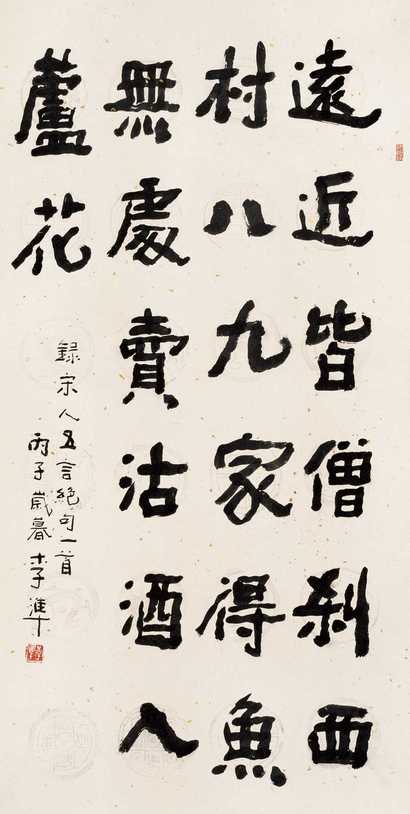 遠近皆僧刹西
村八九家得魚
無處賣沽酒入
蘆花
録宋人五言絶句一首
丙子歲暮李準